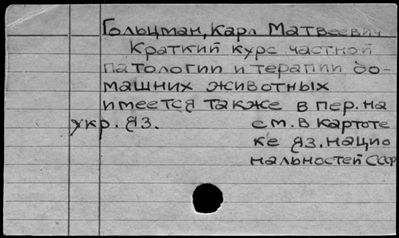 Гольцман, Карл Матвеевич
Краткий курс частной
патологии и терапии до-
машних животных
имеется также в пер. на
укр. яз. см. в картоте
ке яз. нацио
нальностей СССР